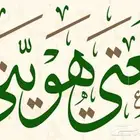 غتي هويّتي